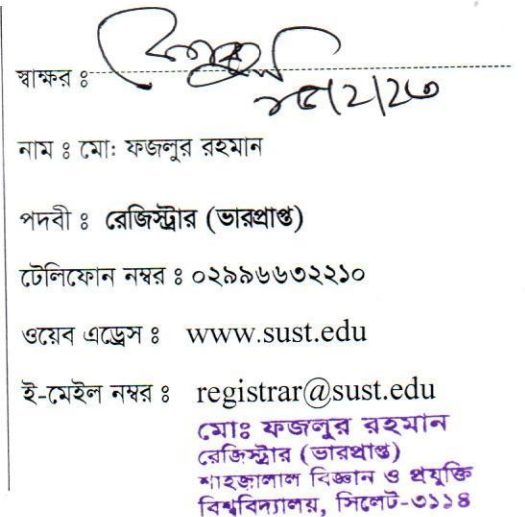 স্বাক্ষর ঃ
নাম ঃ মো: ফজলুর রহমান
পদবী ঃ রেজিস্ট্রার (ভারপ্রাপ্ত)
টেলিফোন নম্বর ঃ ০২৯৯৬৬৩২২১০
ওয়েব এড্রেস ঃ www.sust.edu
ই-মেইল নম্বর ঃ registrar@sust.edu
মোঃ ফজলুর রহমান
রেজিস্ট্রার (ভারপ্রাপ্ত)
শাহজালাল বিজ্ঞান ও প্রযুক্তি
বিশ্ববিদ্যালয়, সিলেট-৩১১৪